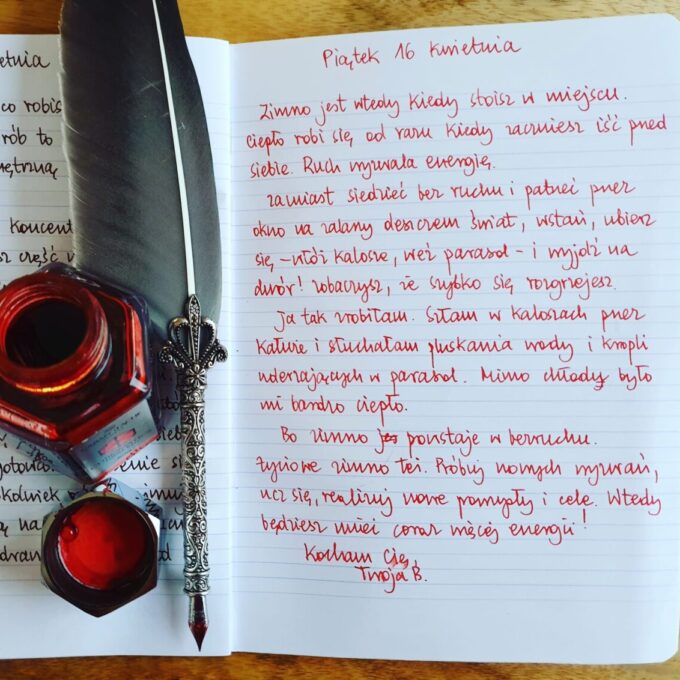 etnia
co robis
rób to
ętrzną
Koncent
sz część
gotowa
enie
olwiek
ą na
zdraw
Piątek 16 kwietnia
Zimno jest wtedy kiedy stoisz w miejscu.
ciepło robi się od razu kiedy zaczniesz iść przed
siebie. Ruch wyzwala energię.
zamiast siedzieć bez ruchu i patrzeć przez
okno na zalany deszczem świat, wstań, ubierz
się – włóż kalosze, weź parasol – i wyjdź na
dwór! zobaczysz, że szybko się rozgrzejesz.
Ja tak zrobiłam. Szłam w kaloszach przez
kałuże i słuchałam pluskania wody i kropli
uderzających w parasol. Mimo chłodu było
mi bardzo ciepło.
Bo zimno powstaje w bezruchu.
Życiowe zimno też. Próbuj nowych wyzwań,
ucz się, realizuj nowe pomysły i cele. Wtedy
będziesz mieć coraz więcej energii!
Kocham Cię,
Twoja B.